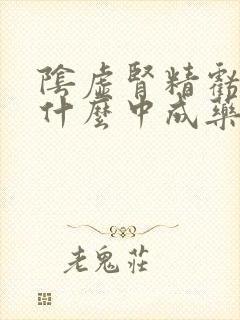 陰虛腎精虧
什麼中成藥
老鬼莊